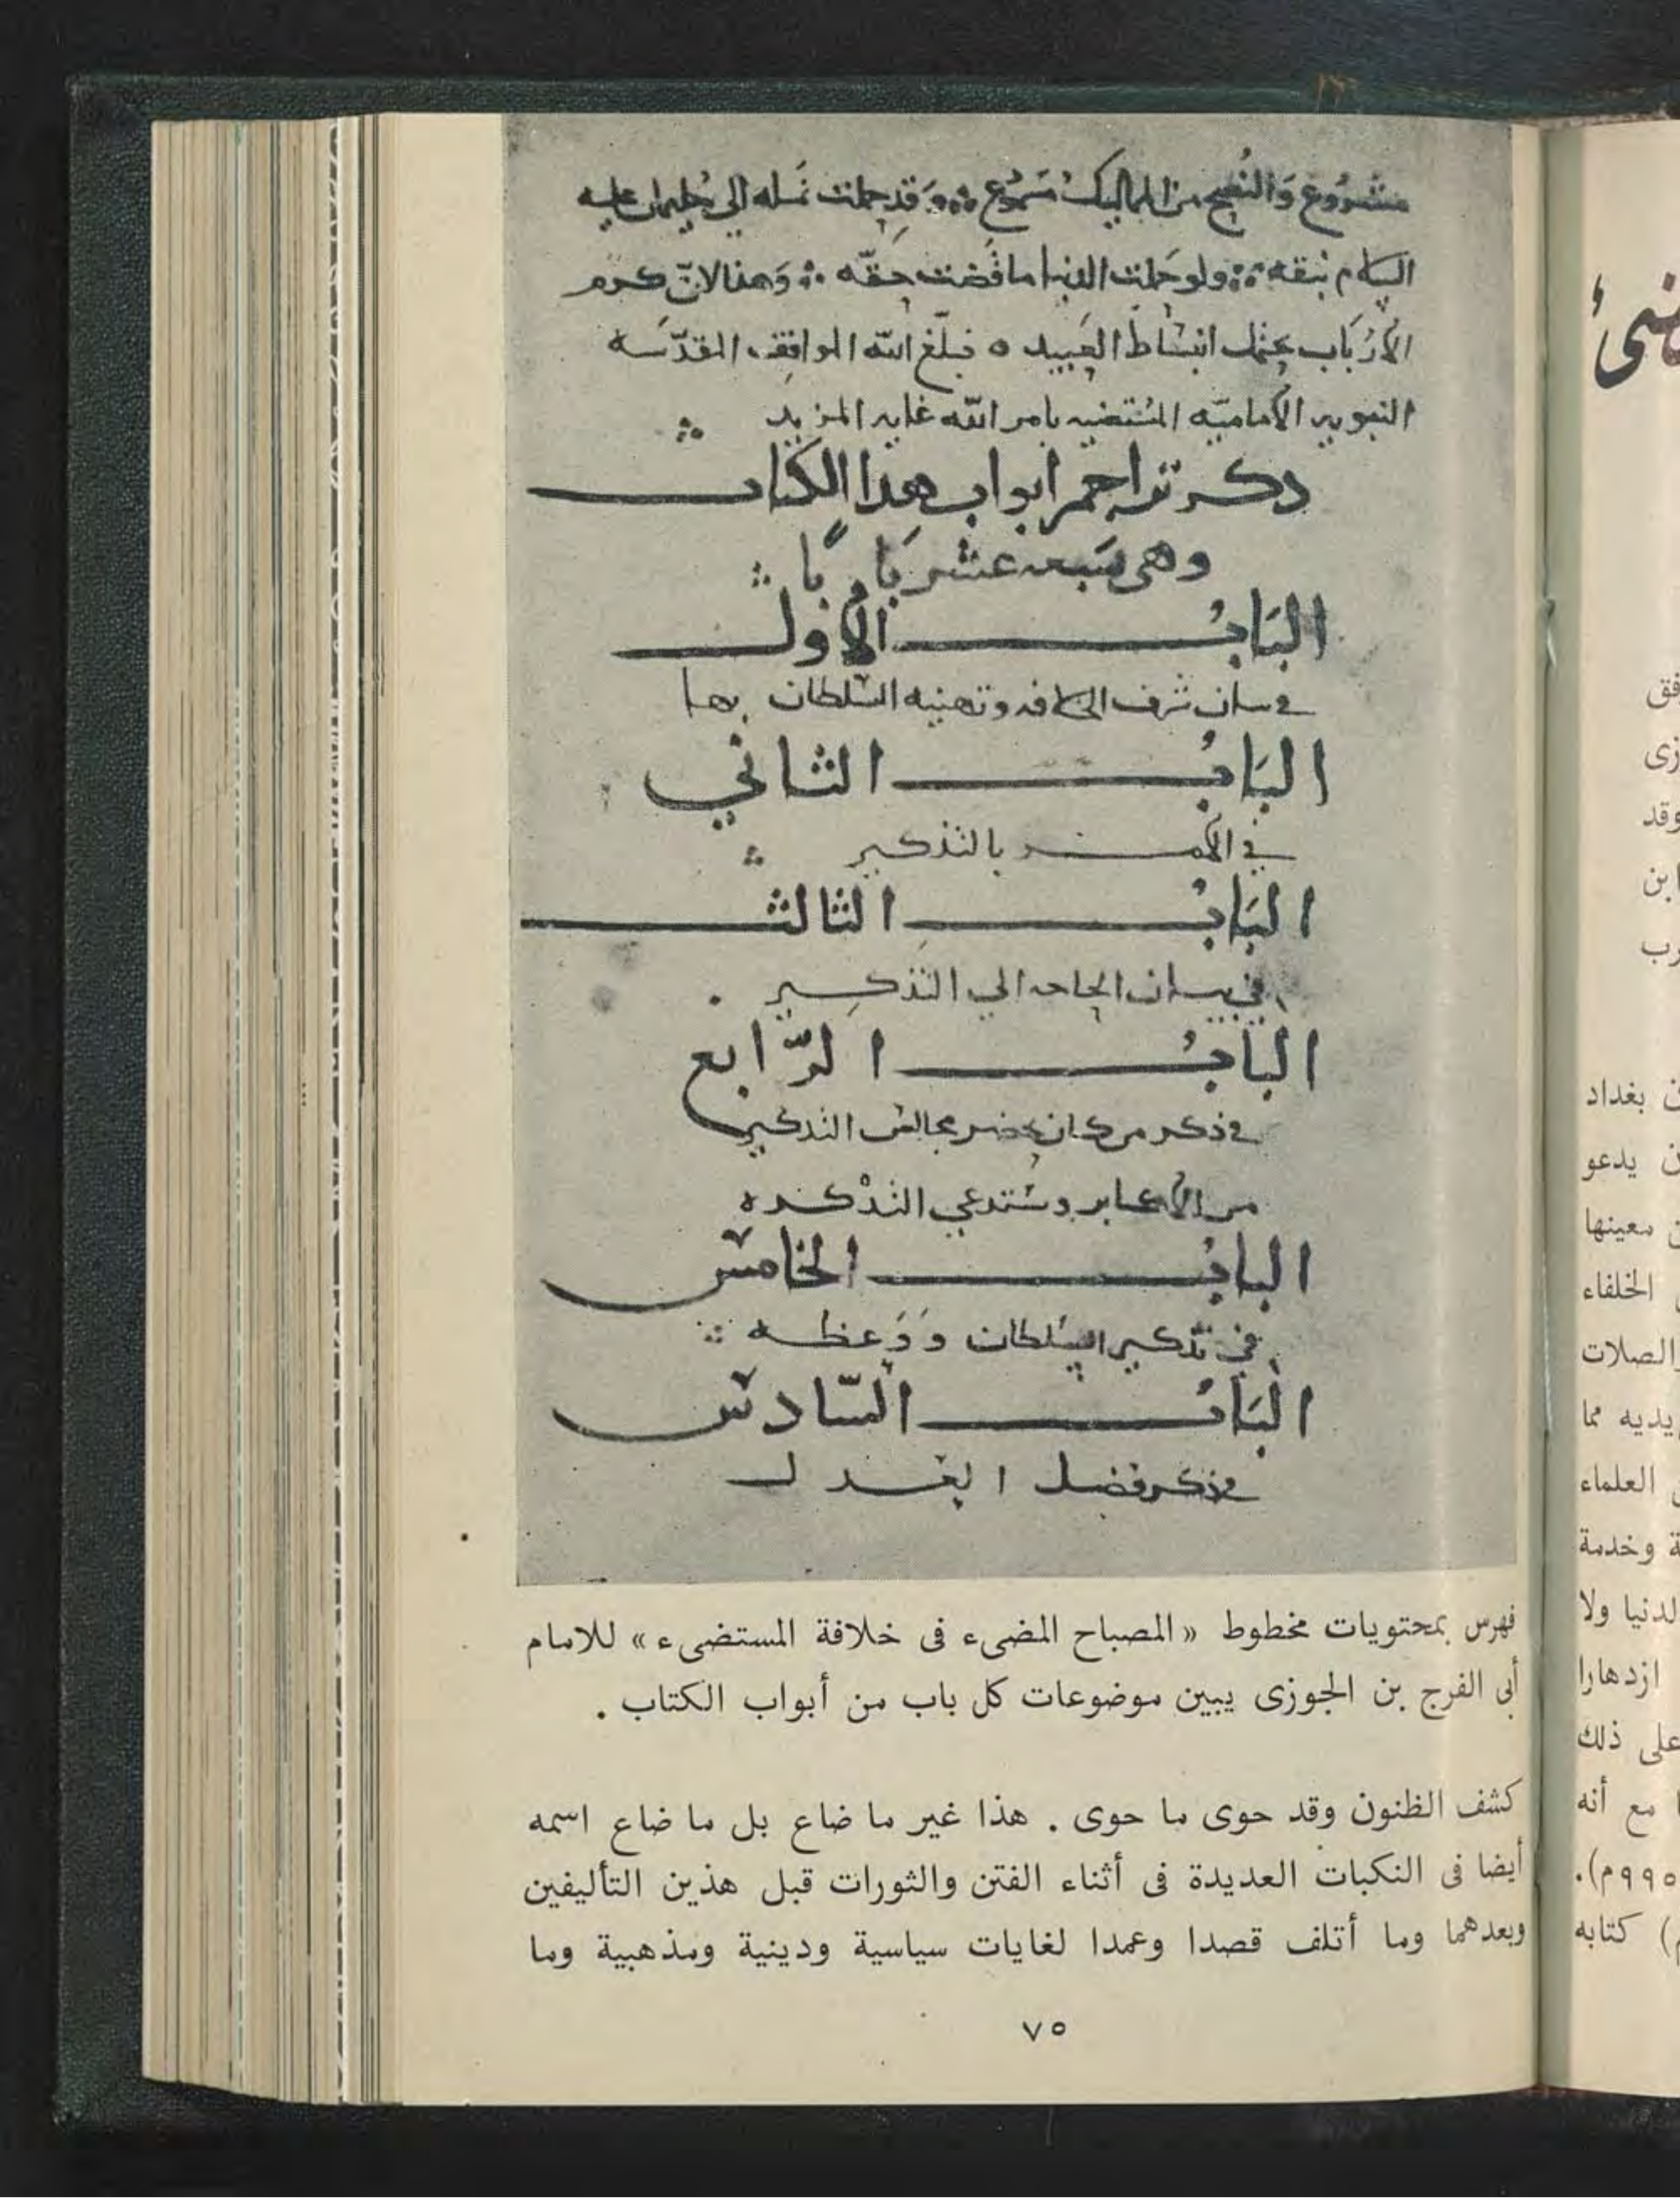 مشروع والنصح من المماليك مسموع وقد حملت نمله الي سليمان عليه
السلام نبقه ولو حملت الدنيا ما قضت حقه وهذا لان كرم
الأرباب يحتمل انبساط العبيد ه فبلغ الله المواقف المقدّسه
النبويه الأماميّه المستضيه بامر الله غايه المزيد
ذكر تراجم ابواب هذا الكتاب
وهى سبعه عشر بابًا
البَابُ الأول
في بيان شرف الخلافه وتهنيه السلطان بها
البَابُ الثاني
في الأمر بالتذكير
البَابُ الثالث
في بيان الحاجه الي التذكير
البابُ الرّابع
في ذكر من كان يحضر مجالس التذكير
من الأكابر ويستدعي التذكره
البابُ الخامس
في تذكير السلطان ووعظه
البَابُ السّادس
في ذكر فضل العدل
فهرس بمحتويات مخطوط «المصباح المضىء فى خلافة المستضىء» للامام
أبى الفرج بن الجوزى يبين موضوعات كل باب من أبواب الكتاب .
كشف الظنون وقد حوى ما حوى . هذا غير ما ضاع بل ما ضاع اسمه
أيضا فى النكبات العديدة فى أثناء الفتن والثورات قبل هذين التأليفين
وبعدهما وما أتلف قصدا وعمدا لغايات سياسية ودينية ومذهبية وما
٧٥
بغداد
يدعو
معينها
الخلفاء
والصلات
يديه مما
العلماء
وخدمة
ولا
ازدهارا
على ذلك
مع أنه
٩٩٥م).
كتابه